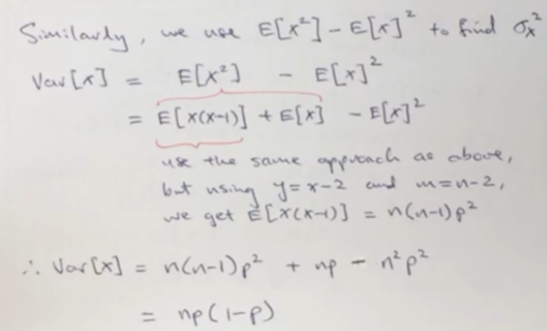 Similarly, we use E[x²] - E[x]² to find σₓ²
Var[x] = E[x²] - E[x]²
= E[x(x-1)] + E[x] - E[x]²
use the same approach as above,
but using y=x-2 and m=n-2,
we get E[x(x-1)] = n(n-1)p²
∴ Var[x] = n(n-1)p² + np - n²p²
= np(1-p)